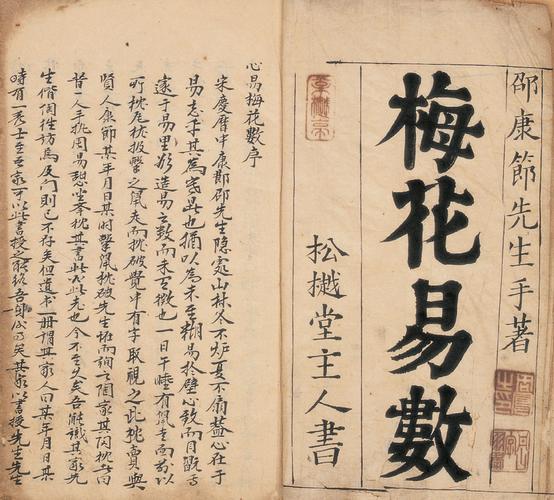 邵康節先生手著
梅花易數
松樾堂主人書
心易梅花數序
宋慶曆中康節邵先生隱處山林冬不炉夏不扇蓋心在于
易忘乎其為寒暑也猶以為未至糊易於壁心致而目翫焉
邃于易理欲造易之數而未有徵也一日午睡有鼠走而前以
所枕瓦枕投擊之鼠走而枕破覺中有字取視之此枕賣與
賢人康節某年月日某時擊鼠枕破先生怪而詢之陶家其陶枕者曰
昔一人手执周易憩坐举枕其書此必此老也今不至久矣吾能識其家先
生偕陶往訪焉及門則已不存矣但遺书一冊謂其家人曰某年月日某
時有一秀士至吾家可以此書授之能終吾身矣其家以書授先生先生